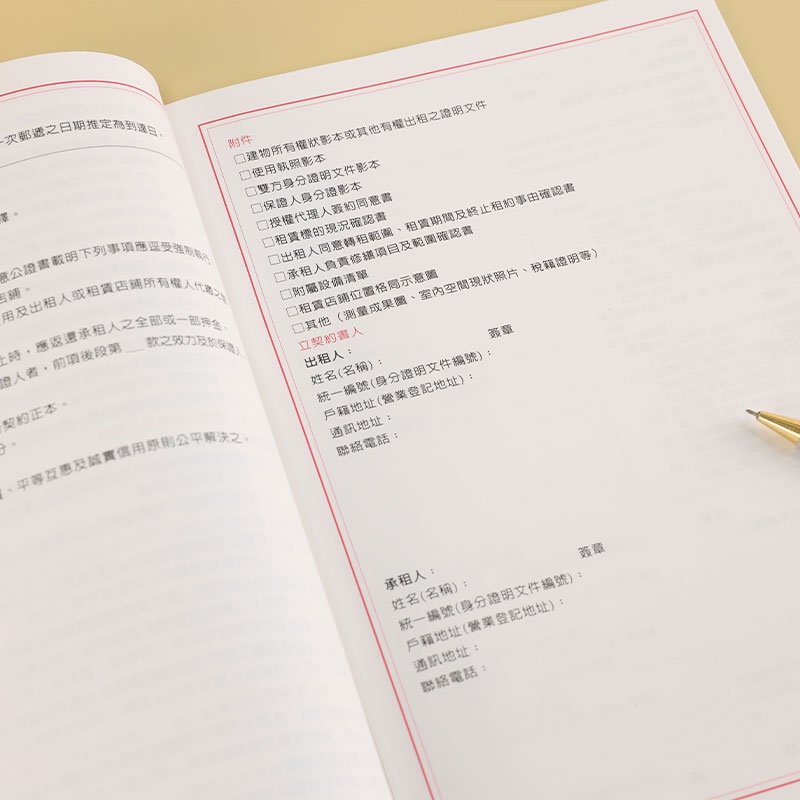 次郵遞之日期推定為到達日。
擇。
意公證書載明下列事項應逕受強制執行
店鋪。
用及出租人或租賃店鋪所有權人代繳之
止時,應返還承租人之全部或一部押金。
證人者,前項後段第 ___ 款之效力及於保證人
契約正本。
分。
、平等互惠及誠實信用原則公平解決之。
附件
□建物所有權狀影本或其他有權出租之證明文件
□使用執照影本
□雙方身分證明文件影本
□保證人身分證影本
□授權代理人簽約同意書
□租賃標的現況確認書
□出租人同意轉租範圍、租賃期間及終止租約事由確認書
□承租人負責修繕項目及範圍確認書
□附屬設備清單
□租賃店鋪位置格局示意圖
□其他(測量成果圖、室內空間現狀照片、稅籍證明等)
立契約書人
出租人: 簽章
姓名(名稱):
統一編號(身分證明文件編號):
戶籍地址(營業登記地址):
通訊地址:
聯絡電話:
承租人: 簽章
姓名(名稱):
統一編號(身分證明文件編號):
戶籍地址(營業登記地址):
通訊地址:
聯絡電話: